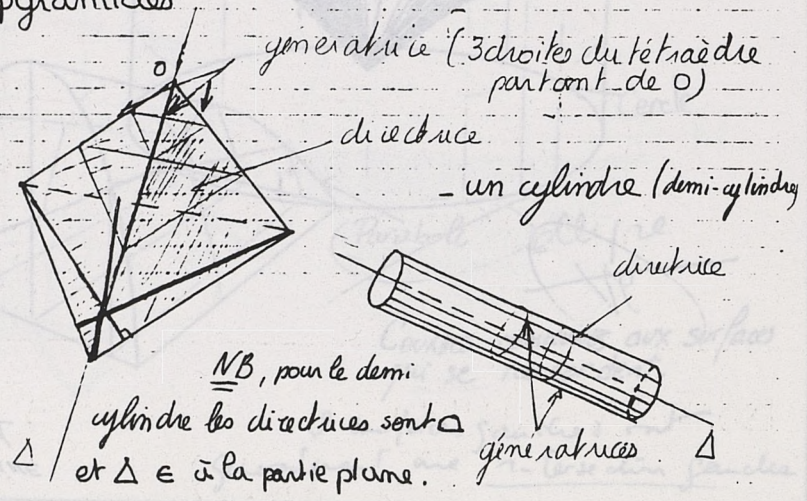 pyramides
O
génératrice (3 droites du tétraèdre
partant de O)
directrice
- un cylindre (demi-cylindre)
directrice
NB, pour le demi
cylindre les directrices sont
et Δ ∈ à la partie plane.
génératrices
Δ
Δ